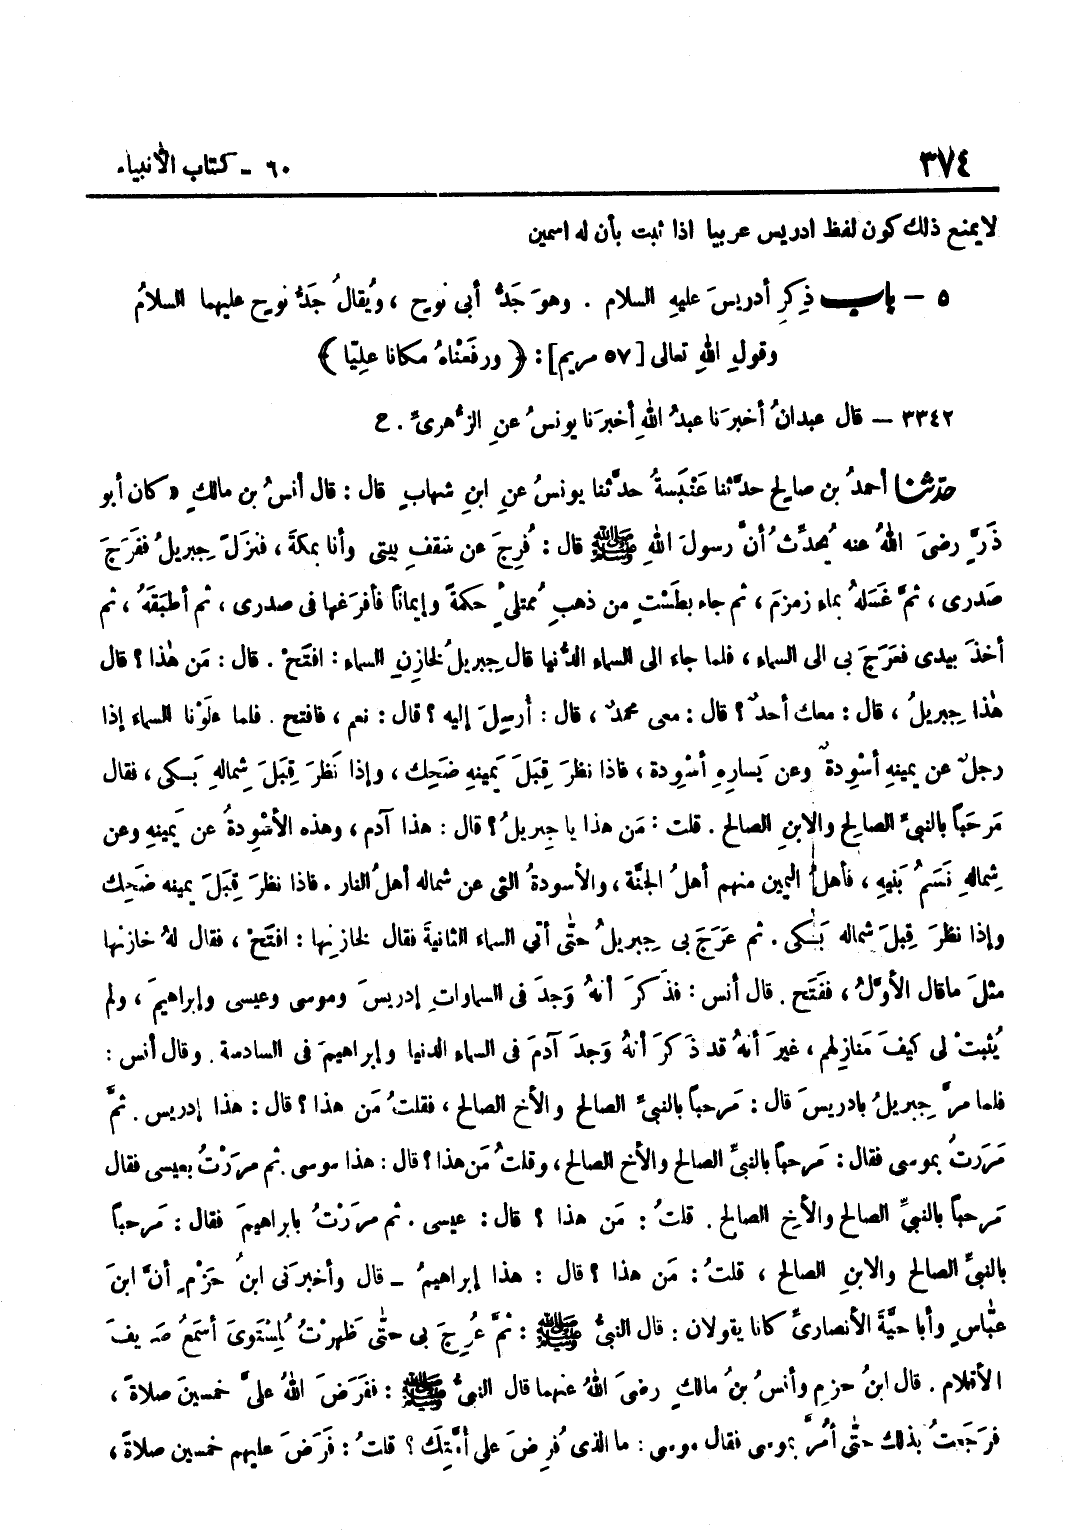 ٣٧٤
٦٠ - كتاب الأنبياء
لايمنع ذلك كون لفظ ادريس عربيا اذا ثبت بأن له اسمين
٥ — باب ذِكرِ أدريسَ عليهِ السلام . وهوَ جَدُّ أبى نوح ، ويُقالُ جَدُّ نوح عليهما السلامُ
وقولِ اللهِ تعالى [ ٥٧ مريم ] : ﴿ ورفَعْناهُ مكانا عليّا ﴾
٣٣٤٢ — قال عبدانُ أخبرَنا عبدُ اللهِ أخبرَنا يونسُ عنِ الزُّهرىِّ . ح
حدّثنا أحمدُ بن صالح حدَّثنا عَنْبَسةُ حدَّثنا يونسُ عنِ ابنِ شهابٍ قال : قال أنسُ بن مالكٍ « كان أبو
ذَرٍّ رضىَ اللهُ عنه يُحدِّثُ أنَّ رسولَ اللهِ ﷺ قال : فُرِجَ عن سَقفِ بيتى وأنا بمكةَ ، فنزلَ جِبريلُ ففَرَجَ
صَدرى ، ثمَّ غَسَلهُ بماءِ زمزمَ ، ثم جاء بطَسْتٍ من ذهبٍ مُمتلىٍْ حكمةً وإيمانًا فأفرَغها فى صدرى ، ثم أطبَقَهُ ، ثم
أخذَ بيدى فعَرَجَ بى الى السماءِ ، فلما جاء الى السماءِ الدُّنيا قال جِبريلُ لخازنِ السماءِ : افتَحْ . قال : مَن هٰذا ؟ قال
هٰذا جِبريلُ ، قال : معك أحدٌ ؟ قال : معى محمدٌ ، قال : أُرسِلَ إليه ؟ قال : نعم ، فافتح . فلما عَلَوْنا السماء إذا
رجلٌ عن يمينهِ أسْوِدةٌ وعن يَسارهِ أسْوِدة ، فاذا نظرَ قِبَلَ يَمينهِ ضَحِك ، وإذا نَظرَ قِبَلَ شِمالهِ بَكى ، فقال
مَرحَبًا بالنبىِّ الصالِح والابنِ الصالح . قلت : مَن هذا يا جِبريلُ ؟ قال : هذا آدم ، وهذه الأسْوِدةُ عن يَمينهِ وعن
شِمالهِ نَسَمُ بَنيهِ ، فأهلُ اليمين منهم أهلُ الجنَّة ، والأسودةُ التى عن شماله أهلُ النار . فاذا نظرَ قِبَلَ يمينه ضَحِك
وإذا نظرَ قِبلَ شماله بَكى . ثم عَرَجَ بى جِبريلُ حتّى أتى السماءَ الثانيةَ فقال لخازنِها : افتَحْ ، فقال لهُ خازنها
مثلَ ماقال الأوَّلُ ، ففَتَح . قال أنس : فذَكرَ أنهُ وَجدَ فى السماواتِ إدريسَ وموسى وعيسى وإبراهيمَ ، ولم
يُثبتْ لى كيفَ مَنازِلهم ، غيرَ أنهُ قد ذَكرَ أنهُ وَجدَ آدمَ فى السماءِ الدنيا وإبراهيمَ فى السادسة . وقال أنس :
فلما مرَّ جِبريلُ بادريسَ قال : مَرحبًا بالنبىِّ الصالح والأخ الصالح ، فقلتُ مَن هذا ؟ قال : هذا إدريس . ثمَّ
مَرَرتُ بموسى فقال : مَرحبًا بالنبىِّ الصالح والأخ الصالح ، وقلتُ مَن هذا ؟ قال : هذا موسى . ثم مررْتُ بعيسى فقال
مَرحبًا بالنبىِّ الصالح والأخِ الصالح . قلتُ : مَن هذا ؟ قال : عيسى . ثم مررْتُ بابراهيمَ فقال : مَرحبًا
بالنبىِّ الصالح والابنِ الصالح ، قلتُ : مَن هذا ؟ قال : هذا إبراهيمُ — قال وأخبرَنى ابنُ حَزْمٍ أنَّ ابنَ
عبّاسٍ وأبا حيَّةَ الأنصارىَّ كانا يقولان : قال النبىُّ ﷺ : ثمَّ عُرِجَ بى حتّى ظهرْتُ لمِسْتَوىً أسمَعُ صَريفَ
الأقلام . قال ابنُ حزمٍ وأنسُ بنُ مالكٍ رضىَ اللهُ عنهما قال النبىُّ ﷺ : ففَرَضَ اللهُ علىَّ خمسينَ صلاةً ،
فرَجَعتُ بذلك حتّى أمُرَّ بموسى فقال موسى : ما الذى فُرِضَ على أمَّتِكَ ؟ قلتُ : فَرَضَ عليهم خمسين صلاةً ،